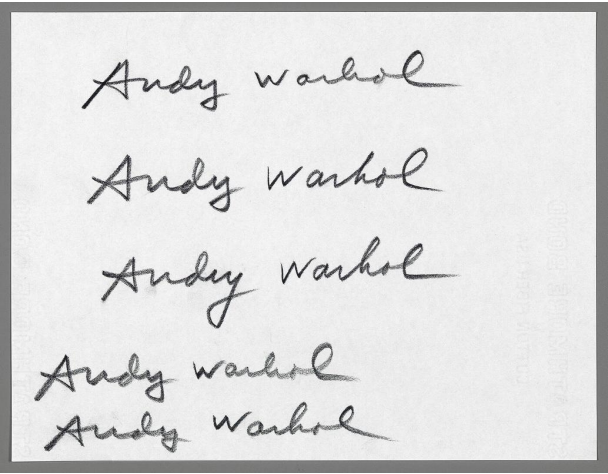 Andy Warhol
Andy Warhol
Andy Warhol
Andy Warhol
Andy Warhol